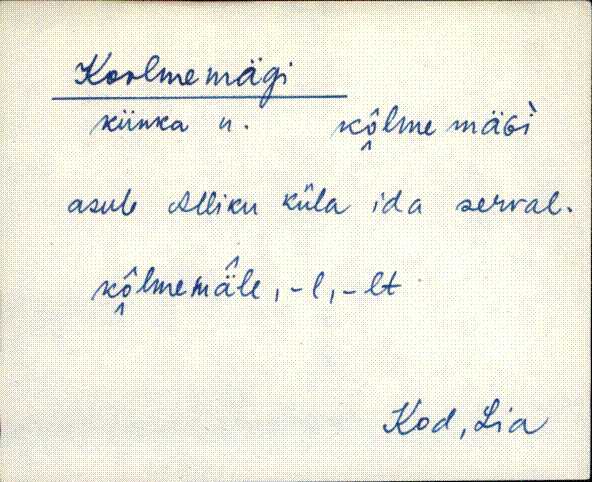 Koolmemägi
künka n. kô̭lme mäGì
asub Alliku küla ida serval.
kô̭lmemä̂le, -l, -lt
Kod, Lia